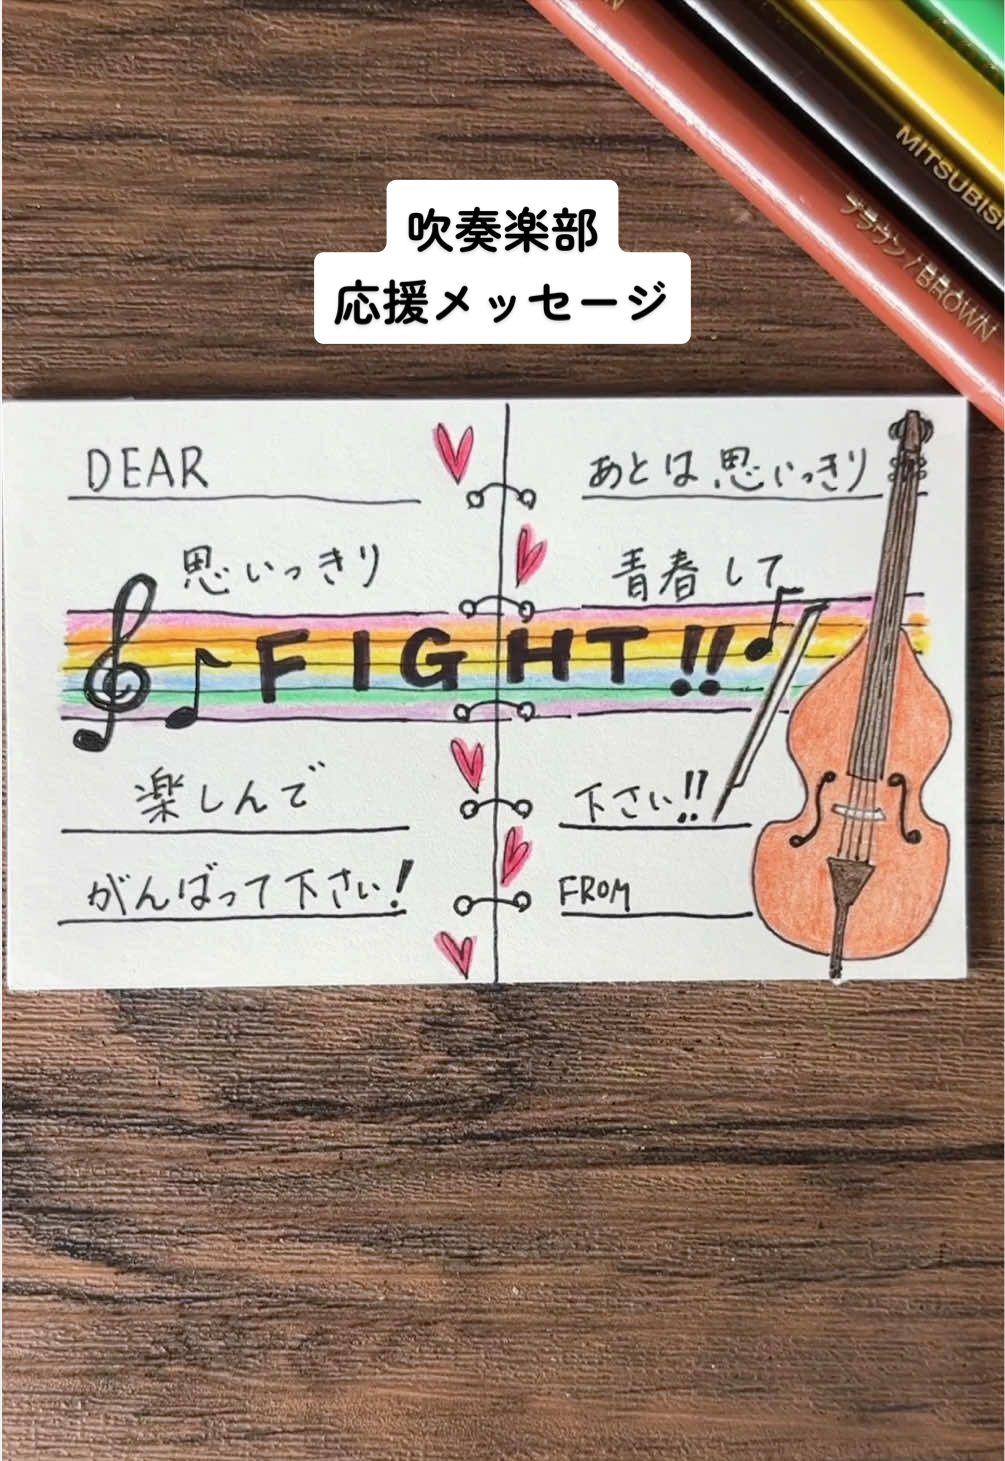 吹奏楽部
応援メッセージ
MITSUBISHI
ブラウン / BROWN
DEAR
思いっきり
FIGHT!!
楽しんで
がんばって下さい!
あとは思いっきり
青春して
下さい!!
FROM